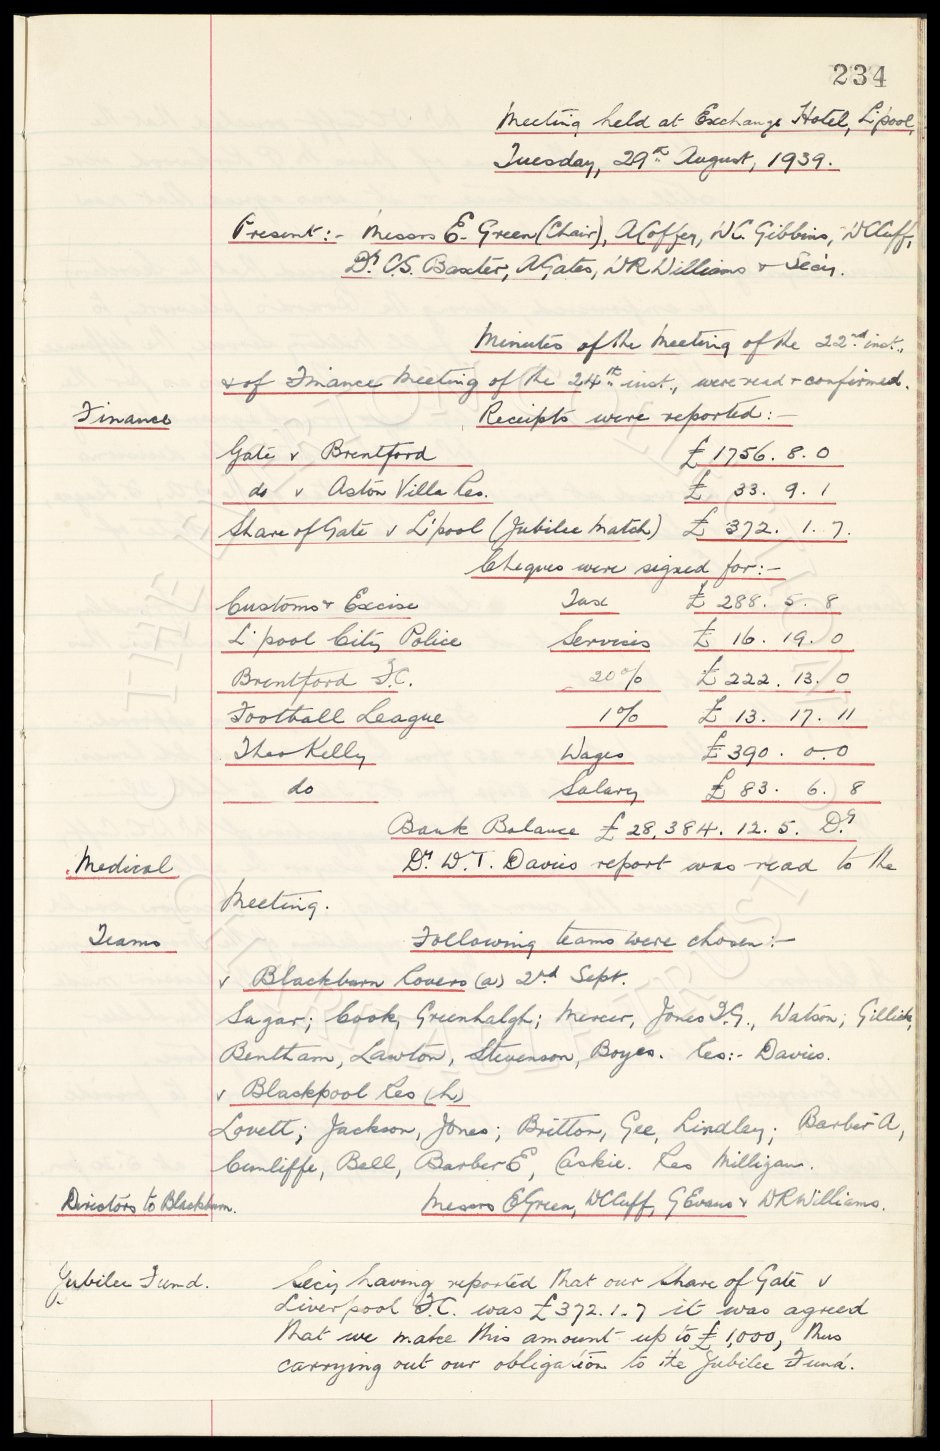 234
Meeting held at Exchange Hotel, L'pool,
Tuesday, 29th August, 1939.
Present:- Messrs E. Green (Chair), A Coffey, W.C. Gibbins, W Cuff,
Dr C.S. Baxter, A Gates, W R Williams & Secy.
Minutes of the Meeting of the 22nd inst.,
& of Finance Meeting of the 24th inst., were read & confirmed.
Finance Receipts were reported:-
Gate v Brentford £ 1756. 8. 0
do v Aston Villa Res. £ 33. 9. 1
Share of Gate v L'pool (Jubilee Match) £ 372. 1. 7.
Cheques were signed for:-
Customs & Excise Tax £ 288. 5. 8
L'pool City Police Services £ 16. 19. 0
Brentford F.C. 20% £ 222. 13. 0
Football League 1% £ 13. 17. 11
Theo Kelly Wages £ 390. 0. 0
do Salary £ 83. 6. 8
Bank Balance £ 28,384. 12. 5. Dr
Medical Dr. W.T. Davies report was read to the
Meeting.
Teams Following teams were chosen:-
v Blackburn Rovers (a) 2nd Sept.
Sagar; Cook, Greenhalgh; Mercer, Jones T.G., Watson; Gillick,
Bentham, Lawton, Stevenson, Boyes. Res:- Davies.
v Blackpool Res (h)
Lovett; Jackson, Jones; Britton, Gee, Lindley; Barber A,
Cunliffe, Bell, Barber E, Caskie. Res Milligan.
Directors to Blackburn. Messrs E Green, W Cuff, G Evans & W R Williams.
Jubilee Fund. Secy having reported that our share of Gate v
Liverpool F.C. was £372.1.7 it was agreed
that we make this amount up to £1,000, thus
carrying out our obligation to the Jubilee Fund.